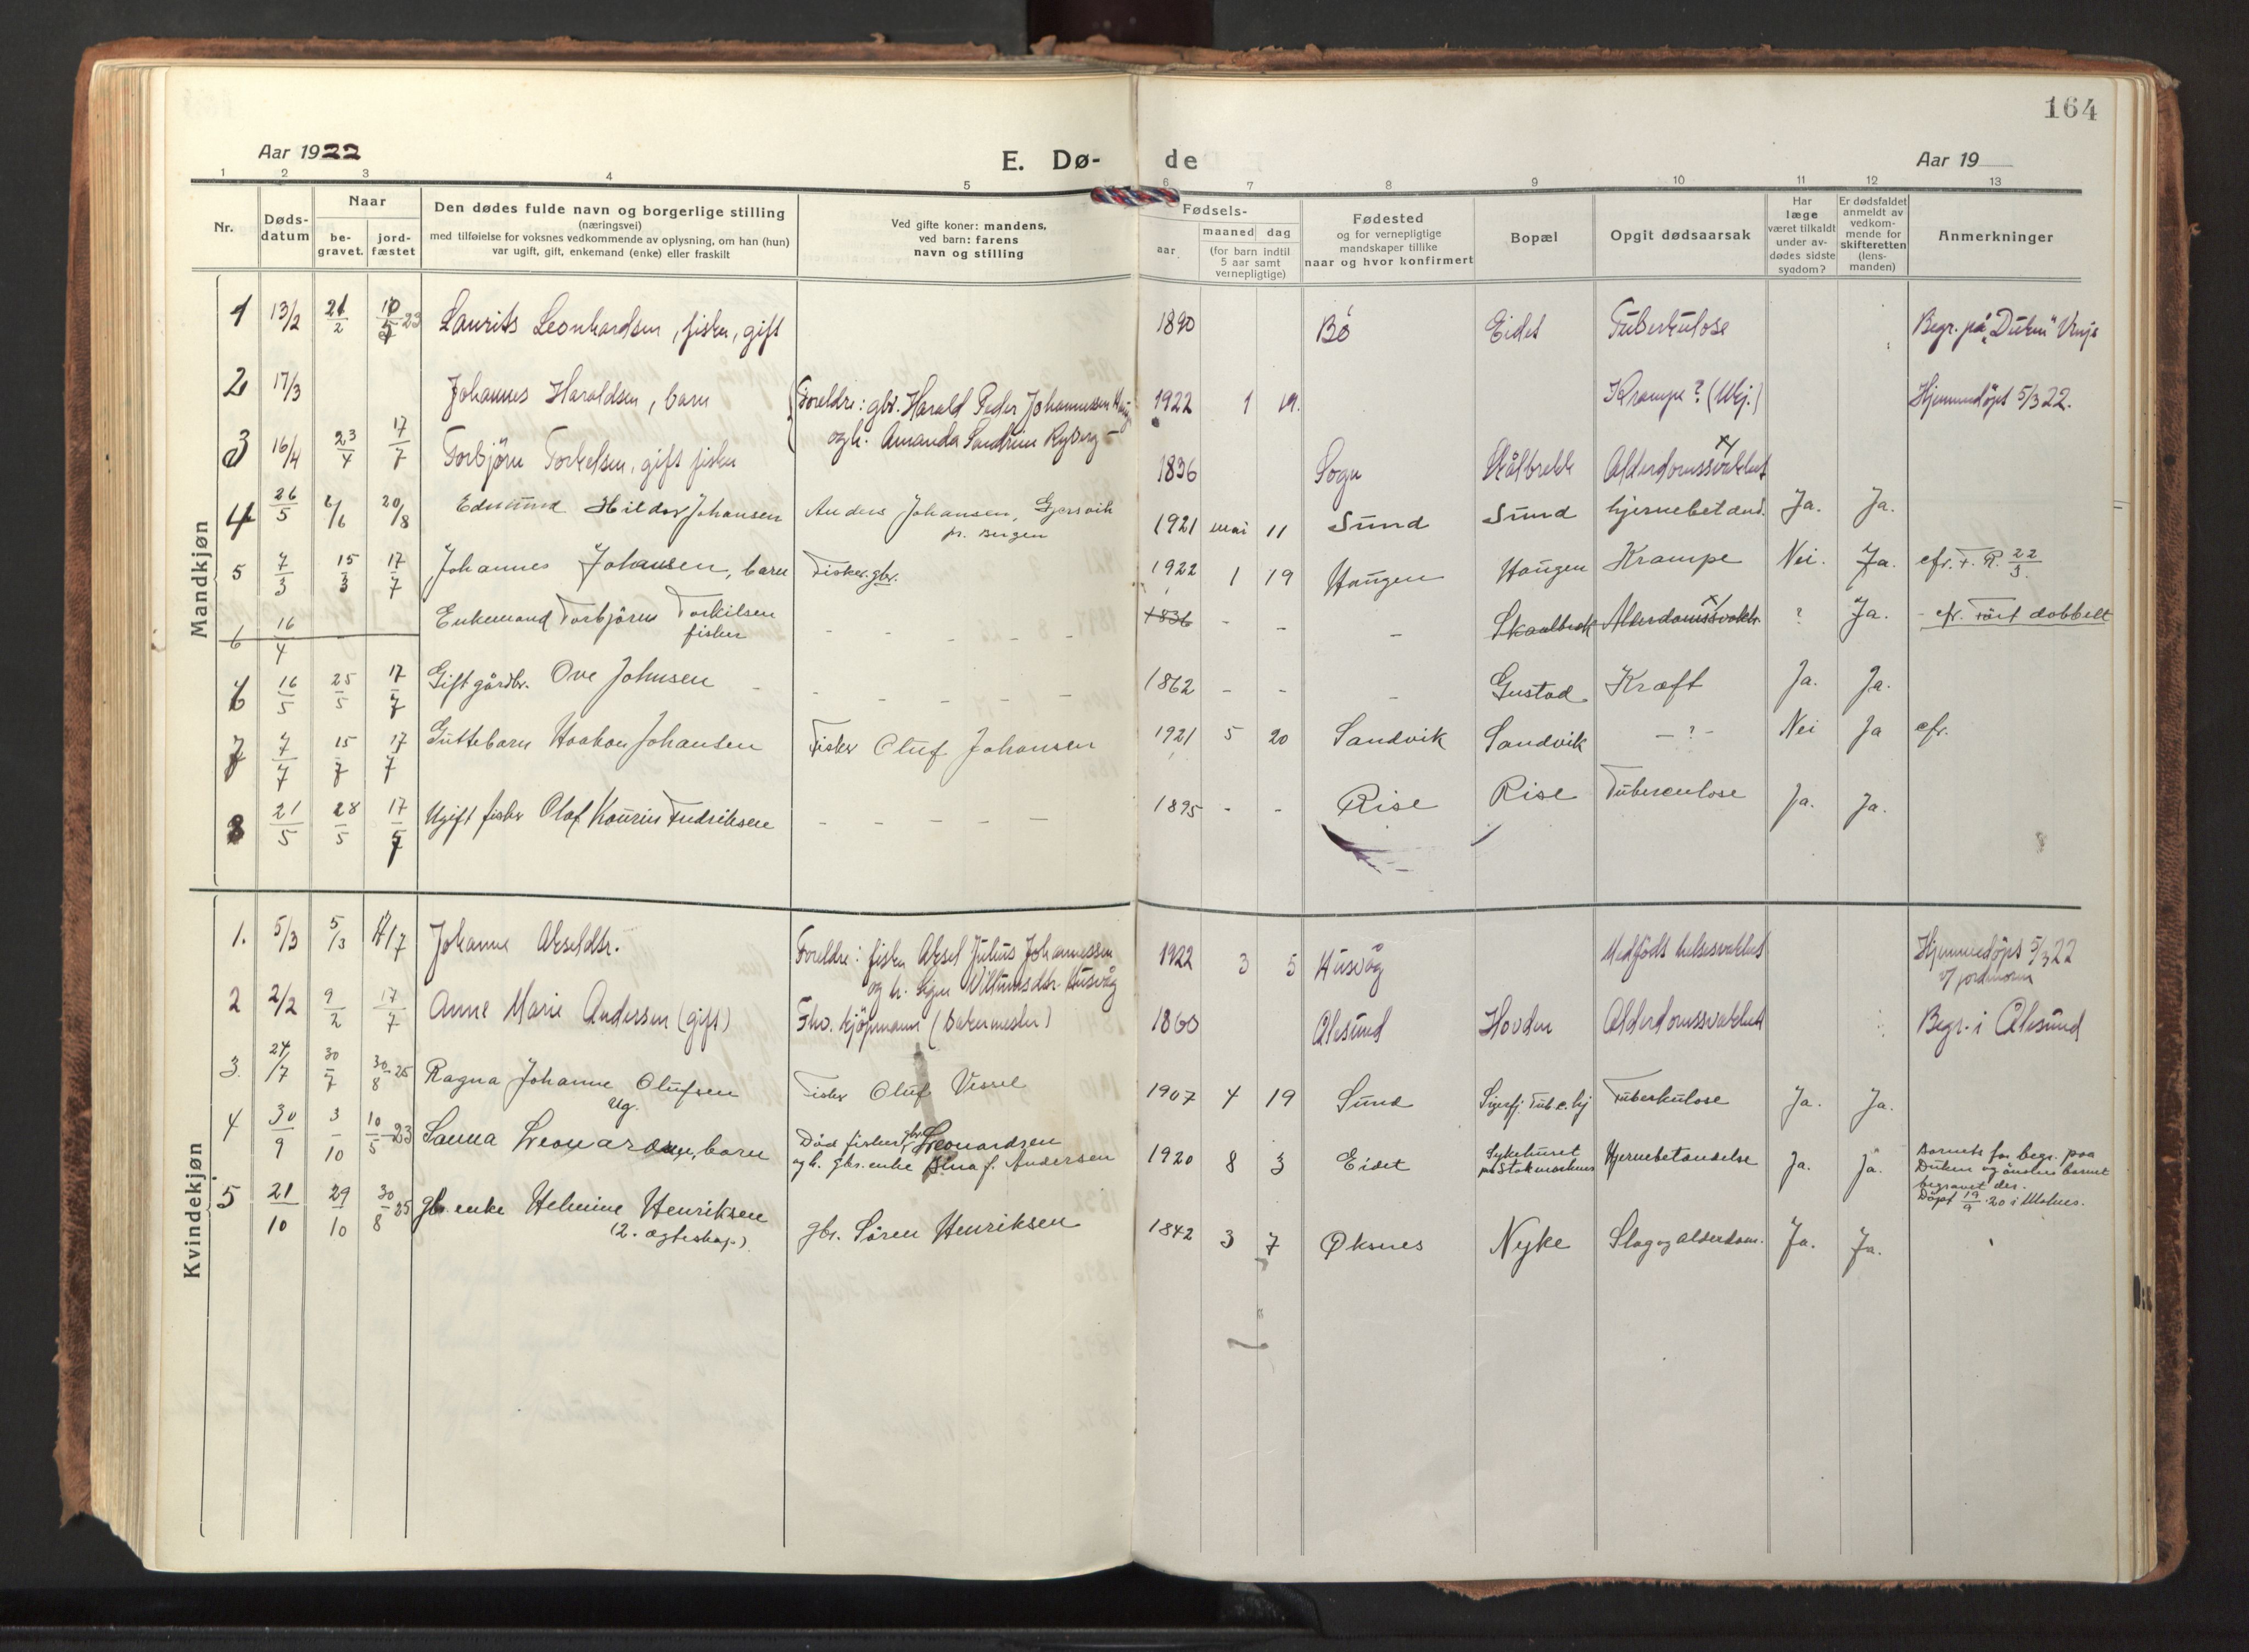 164
Aar 1922
E. Dø- de
Aar 19
1 2 3 4 5 6 7 8 9 10 11 12 13
Nr.
Døds-
datum
Naar
be-
gravet.
jord-
fæstet
Den dødes fulde navn og borgerlige stilling
(næringsvei)
med tilføielse for voksnes vedkommende av oplysning, om han (hun)
var ugift, gift, enkemand (enke) eller fraskilt
Ved gifte koner: mandens,
ved barn: farens
navn og stilling
Fødsels-
aar
maaned dag
(for barn indtil
5 aar samt
vernepligtige)
Fødested
og for vernepligtige
mandskaper tillike
naar og hvor konfirmert
Bopæl
Opgit dødsaarsak
Har
læge
været tilkaldt
under av-
dødes sidste
sygdom?
Er dødsfaldet
anmeldt av
vedkom-
mende for
skifteretten
(lens-
manden)
Anmerkninger
Mandkjøn
1 13/2 21/2 10/5 23 Laurits Leonhardsen, fisker, gift 1890 Bö Eidet Tuberkulose Begr. på "Duken"
2 17/3 Johannes Haraldsen, barn Foreldre: gbr. Harald Peder Johannessen 1922 1 19. Krampe? Hjemmedöpt 5/3 22.
og h. Amanda Sandrine Ryberg
3 16/4 23/4 17/7 Torbjörn Torkelsen, gift fisker 1836 Sogn Skålbrekk Alderdomssvakhet
4 26/5 6/6 20/8 Edmund Hildor Johansen Anders Johansen, Gjersvik 1921 mai 11 Sund Sund hjernebetænd. Ja. Ja.
pr. Bergen
5 7/3 15/3 17/7 Johannes Johansen, barn Fisker. gbr. 1922 1 19 Haugen Haugen Krampe Nei. Ja. cfr. F. R. 22/3.
6 16/4 Enkemand Torbjörn Torkilsen - - - - - 1836 - - - Skaalbrek Alderdomssvakh. ? Ja. - cfr. Fört dobbelt
fisker
6 16/5 25/5 17/7 Gift gårdbr. Ove Johnsen - - - - - - 1862 - - - Gustad Kræft Ja. Ja.
7 7/7 15/7 17/7 Guttebarn Haakon Johansen Fisker Oluf Johansen 1921 5 20 Sandvik Sandvik - ? - Nei Ja cfr.
8 21/5 28/5 17/7 Ugift fisker Olaf Kaurin Fredriksen - - - - - 1895 - - Rise Rise Tuberculose Ja. Ja.
Kvindekjøn
1. 5/3 5/3 17/7 Johanne Akseldtr. Foreldre: fisker Aksel Julius Johannessen 1922 3 5 Husvåg Medfödt helsesvakhet Hjemmedöpt 5/3 22
og h. Signe Husvåg v/ jordmoren
2 2/2 9/2 17/7 Anne Marie Andersen (gift) Fhv. kjöpmann (bakermester) 1860 Ålesund Hovden Alderdomssvakhet Begr. i Ålesund
3. 24/7 30/7 30/8-25 Ragna Johanne Olufsen Fisker Oluf Vessel 1907 4 19 Sund Sigerfj. Tub.c. hj Tuberkulose Ja. Ja.
ug.
4 30/9 3/10 10/5-23 Sanna Leonardsen, barn Död fisker gbr. Leonardsen 1920 8 3 Eidet Sykehuset Hjernebetændelse Ja. Ja. Barnets far begr. paa
og h. gbr. enke f. Andersen paa Stokmarknes Duken og önskes barnet
begravet der.
Döpt 19/9.20 i Malnes.
5 21/10 29/10 30/8 25 gbr. enke Helmine Henriksen gbr. Sören Henriksen 1842 3 7 Øksnes Nyke Slag og alderdom. Ja. Ja.
(2. ægteskap.)